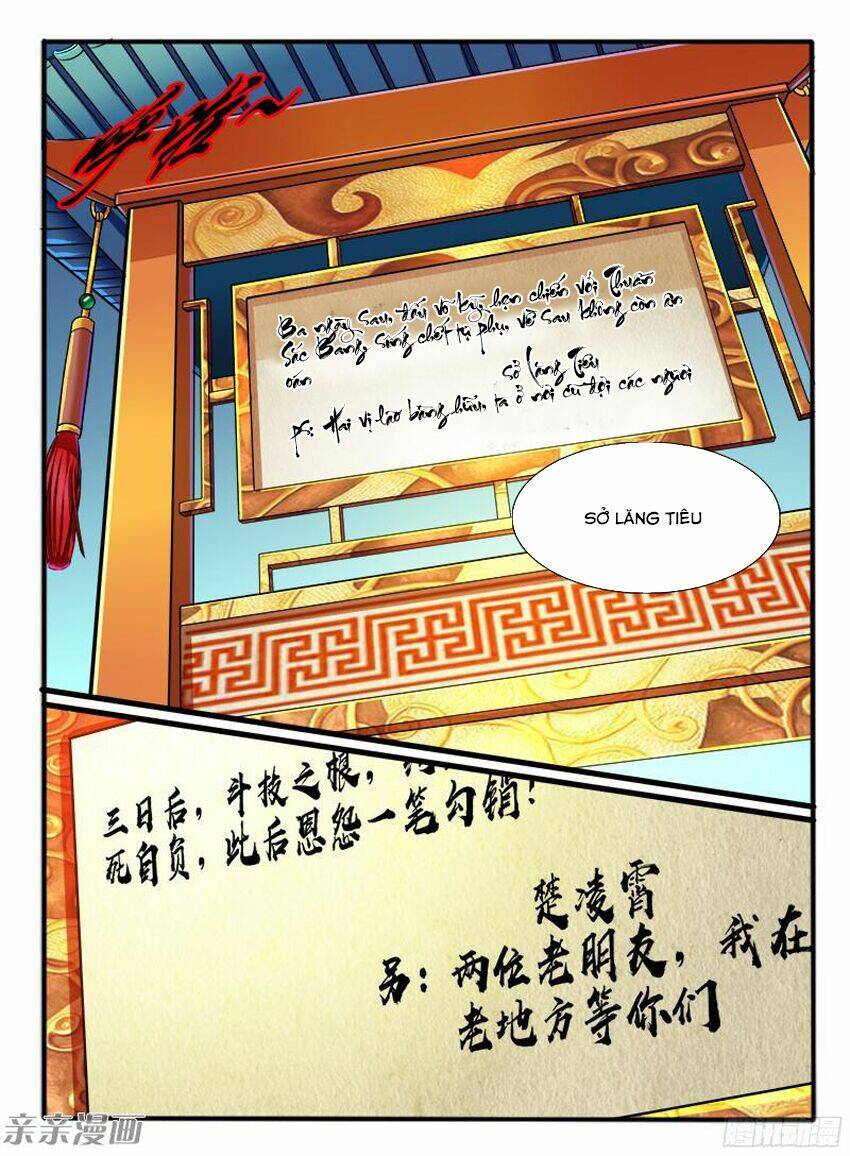 Ba ngày sau, đấu võ kỳ, hẹn chiến với Thuần
Sắc Bang, sống chết tự phụ, về sau không còn ân
oán
Sở Lăng Tiêu
PS: Hai vị lão bằng hữu, ta ở nơi cũ đợi các ngươi
SỞ LĂNG TIÊU
三日后，斗技之根，
死自负，此后恩怨一笔勾销！
楚凌霄
另：两位老朋友，我在
老地方等你们
亲亲漫画